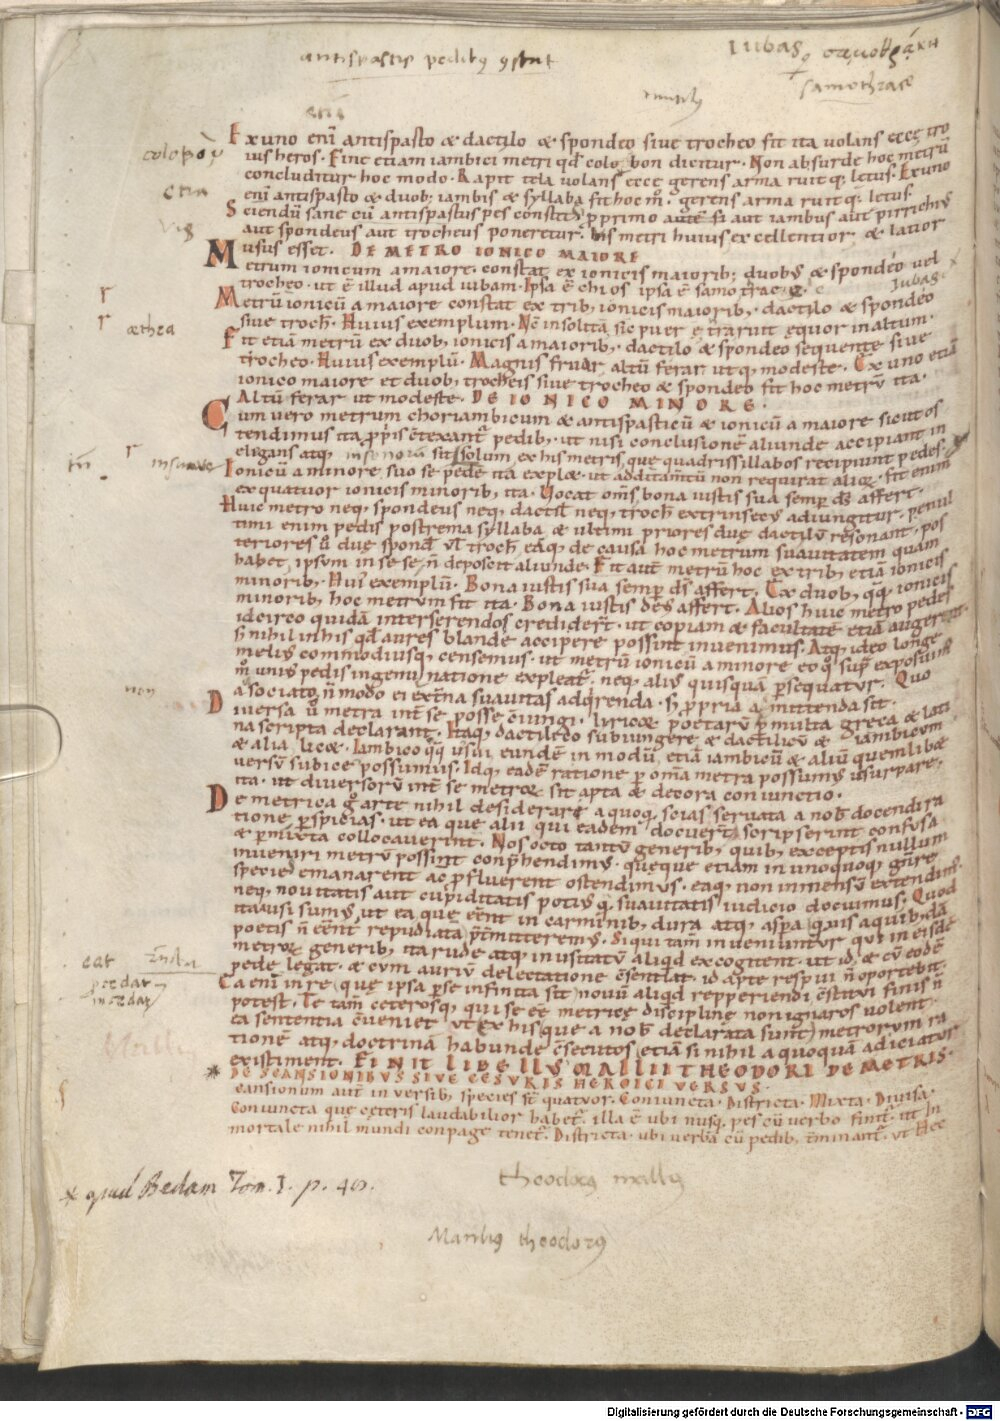 antispastis pedibꝰ ꝯstat
Iubas
σαμοθρᾴκη
samothrace
etiã
Ex uno enĩ antispasto & dactilo & spondeo sive trocheo fit ita volans ecce tro
ius heros. Hinc etiam iambici metri qd colo bon dicitur. Non absurde hoc metrũ
concluditur hoc modo. Rapit tela volans ecce gerens arma ruit qꝫ letus. Ex uno
enĩ antispasto & duobꝫ iambis & syllaba fit hoc m̃. gerens arma ruit qꝫ letus.
Sciendũ sane cũ antispastus pes constet ꝑ primo aut iambus aut pirrichiꝰ
aut spondeus aut trocheus poneretur. his metri huius excellentior & latior
usus esset. DE METRO IONICO MAIORE
Metrum ionicum a maiore. constat ex ionicis maioribꝫ duobꝰ & spondeo vel
trocheo. ut ẽ illud apud iubam. Ipsa ẽ chios ipsa ẽ samo
Iubas
Metrũ ionicũ a maiore constat ex tribꝫ ionicis maioribꝫ. dactilo & spondeo
sive troch̃. Huius exemplum. Nõ insolita sic puer ẽ trarunt equor in altum.
æthea
Fit etiã metrũ ex duobꝫ ionicis a maioribꝫ. dactilo & spondeo sequente sive
trocheo. Huius exemplũ. Magnus altũ ferar utqꝫ modeste. Ex uno etiã
ionico maiore et duobꝫ trocheis sive trocheo & spondeo fit hoc metrũ ita.
Altũ ferar ut modeste. DE IONICO MINORE.
Cum vero metrum choriambicum & antispasticũ & ionicũ a maiore sicut os
tendimus ita ꝓpriis cõtexant̃ pedibꝫ. ut nisi conclusionẽ aliunde accipiant in
elegans atqꝫ sit solum ex his metris que quadrissillabos recipiunt pedes
Ionicũ a minore suo se pede ita explet. ut additamtũ non requirat aliqd. fit enim
ex quatuor ionicis minoribꝫ ita. Vocat om̃s bona iustis sua semꝑ ds̃ affert.
Huic metro neqꝫ spondeus neqꝫ dactil neqꝫ troch̃ extrinsecꝰ adiungitur. penul
timi enim pedis postrema syllaba & ultimi priores due dactilũ resonant. pos
teriores ũ due spond̃ vl̃ troch̃. eaqꝫ de causa hoc metrum suavitatem quam
habet ipsum in se se. ñ deposcit aliunde. Fit aut̃ metrũ hoc ex tribꝫ etiã ionicis
minoribꝫ. Huiꝰ exemplũ. Bona iustis sua semper ds̃ affert. Ex duobꝫ qqꝫ ionicis
minoribꝫ hoc metrum fit ita. Bona iustis deꝰ affert. Alios huic metro pedes
idcirco quidã interserendos crediderṭ. ut copiam & facultatẽ etiã augerent
s̃ nihil in his qd̃ aures blande accipere possint invenimus. Atqꝫ ideo longe
meliꝰ commodiusqꝫ censemus. ut metrũ ionicũ a minore eo q̃ supͣ exposuim̃
m̃ uniꝰ pedis ingenu natione expleat̃. neqꝫ aliꝰ quisquã ꝑsequatur. Quo
non
asociato ñ modo ei ext̃na suavitas adq̃renda. s̃ ꝓpria amittenda sit.
Diversa ũ metra int̃ se posse cõiungi. liricoꝝ poetarũ ꝑmulta greca & lati
na scripta declarant. Itaqꝫ dactileo subiungere & dactilicũ & iambicum
& alia lic&. Iambico qqꝫ visui eundẽ in modũ etiã iambicũ & aliũ quemlibet
versũ subicere possumus. Idqꝫ eadẽ ratione ꝑ om̃a metra possumꝰ usurpare.
ita. ut diversorũ int̃ se metroꝝ sit apta & decora coniunctio.
De metrica g̊ arte nihil desiderare a quoqꝫ scias servata a nob̃ docendi ra
tione ꝑspicias. ut ea que alii qui eadem docuerṭ scripserint confusa
& ꝑmixta collocaverint. Nos octo tantũ generibꝫ quibꝫ exceptis nullum
inveniri metrũ possint conp̃hendimꝰ. queque etiam in unoquoqꝫ gñre
species emanarent ac ꝓfluerent ostendimus. eaqꝫ non inmensũ extendimꝰ.
neqꝫ novitatis aut cupiditatis potiꝰ q̃ suavitatis iudicio docuimus. Quod
ita usi sumꝰ ut ea que eẽnt in carminibꝫ dura atqꝫ aspͣa q̃vis a quibꝫdã
poetis ñ eẽnt repudiata p̃tmitteremꝰ. Siqui tam̃ inveniuntur qui in eisdẽ
metroꝝ generibꝫ ita rude atqꝫ inusitatũ aliqd excogitent. ut id & cũ eodẽ
pede legat. & cum auriũ delectatione cõsentiat. id aꝑte respui ñ oportebit.
Ea enĩ in re que ipsa ꝑ se infinita sit novũ aliqd repperiendi cõstitui finis ñ
potest. Te tam̃ ceterosqꝫ qui se eẽ metrice discipline non ignaros volent.
ea sententia cõveniet ut ex hisque a nob̃ declarata sunt metrorum ra
tionẽ atqꝫ doctrinã habunde cõsecutos etiã si nihil a quoquã adiciatur
existiment. FINIT LIBELLUS MALLII THEODORI DE METRIS.
DE SCANSIONIBUS SIVE CESURIS HEROICI VERSUS.
cansionum aut̃ in versibꝫ species st̃ quatuor. Coniuncta. Districta. Mixta. Divisa.
Coniuncta que ceteris laudabilior habet̃. illa ẽ ubi nusqꝫ pes cũ verbo finit̃. ut In
mortale nihil mundi conpage tenet̃. Districta. ubi verba cũ pedibꝫ t̃minant̃. ut Hec
* apud Bedam Tom. I. p. 40.
theodorꝰ mallꝰ
Manliꝰ theodorꝰ
Digitalisierung gefördert durch die Deutsche Forschungsgemeinschaft - DFG